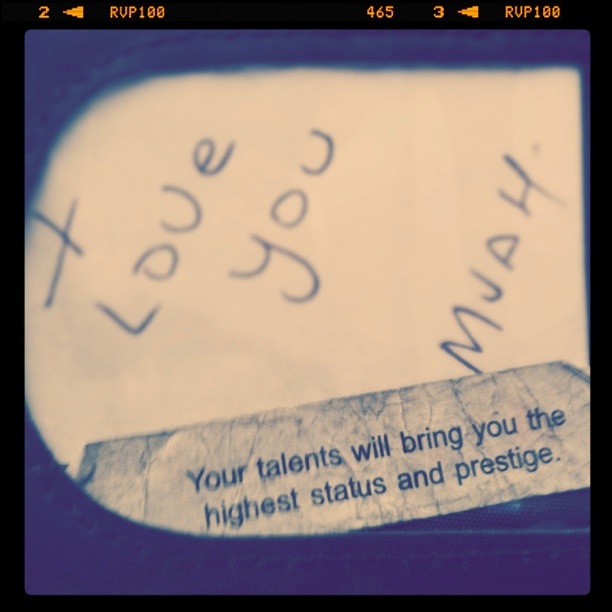 2 RVP100 465 3 RVP100
I
LOVE
YOU
MUAH.
Your talents will bring you the
highest status and prestige.